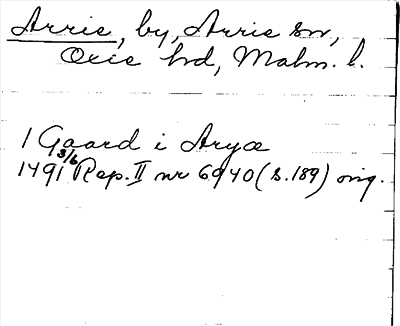 Arrie, by, Arrie sn,
Oxie hd, Malm. l.
1 Gaard i Aryæ
1491 3/6 Rep. II nr 6940 (s. 189) orig.